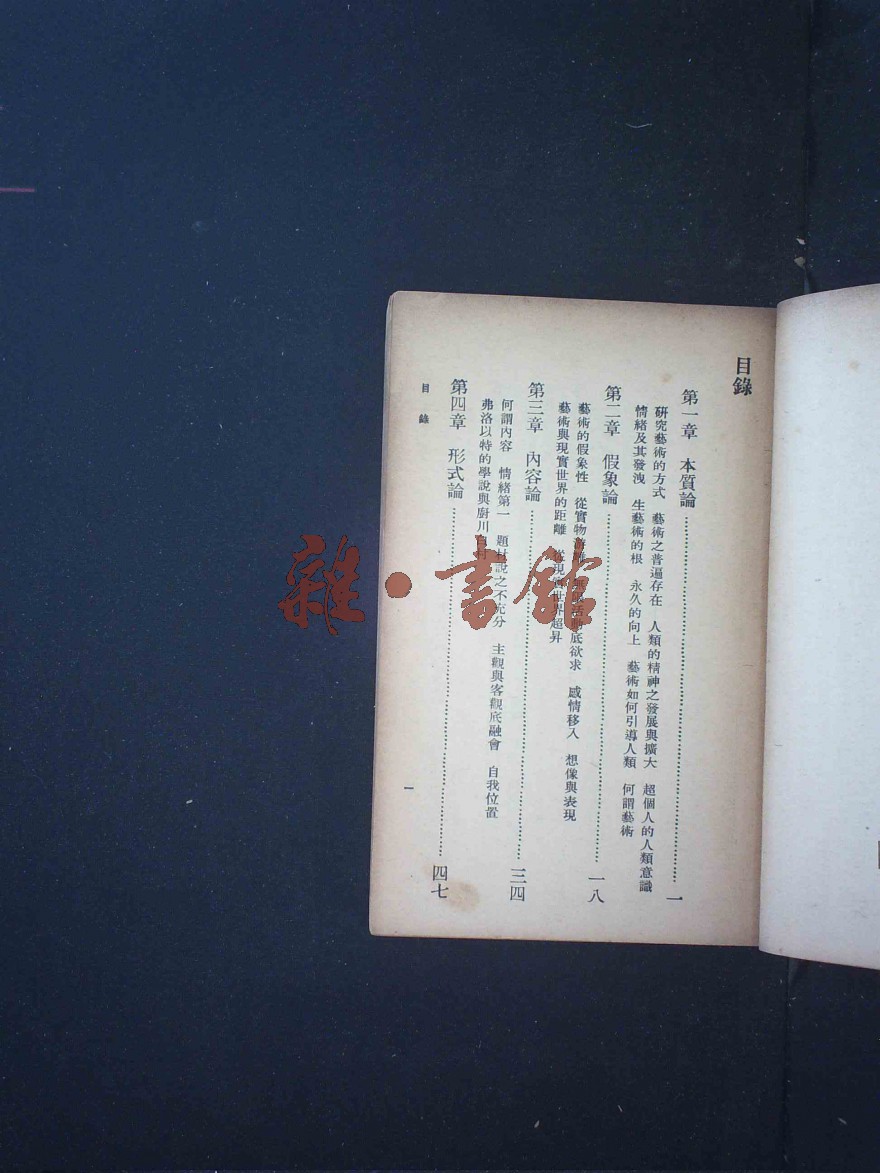 目錄
第一章 本質論 一
研究藝術的方式 藝術之普遍存在 人類的精神之發展與擴大 超個人的人類意識
情緒及其發洩 生藝術的根 永久的向上 藝術如何引導人類 何謂藝術
第二章 假象論 一八
藝術的假象性 從實物 底欲求 感情移入 想像與表現
藝術與現實世界的距離 從現實世界超昇
第三章 內容論 三四
何謂內容 情緒第一 題材說之不充分 主觀與客觀底融會 自我位置
弗洛以特的學說與廚川白村
第四章 形式論 四七
目錄
一
雜·書館